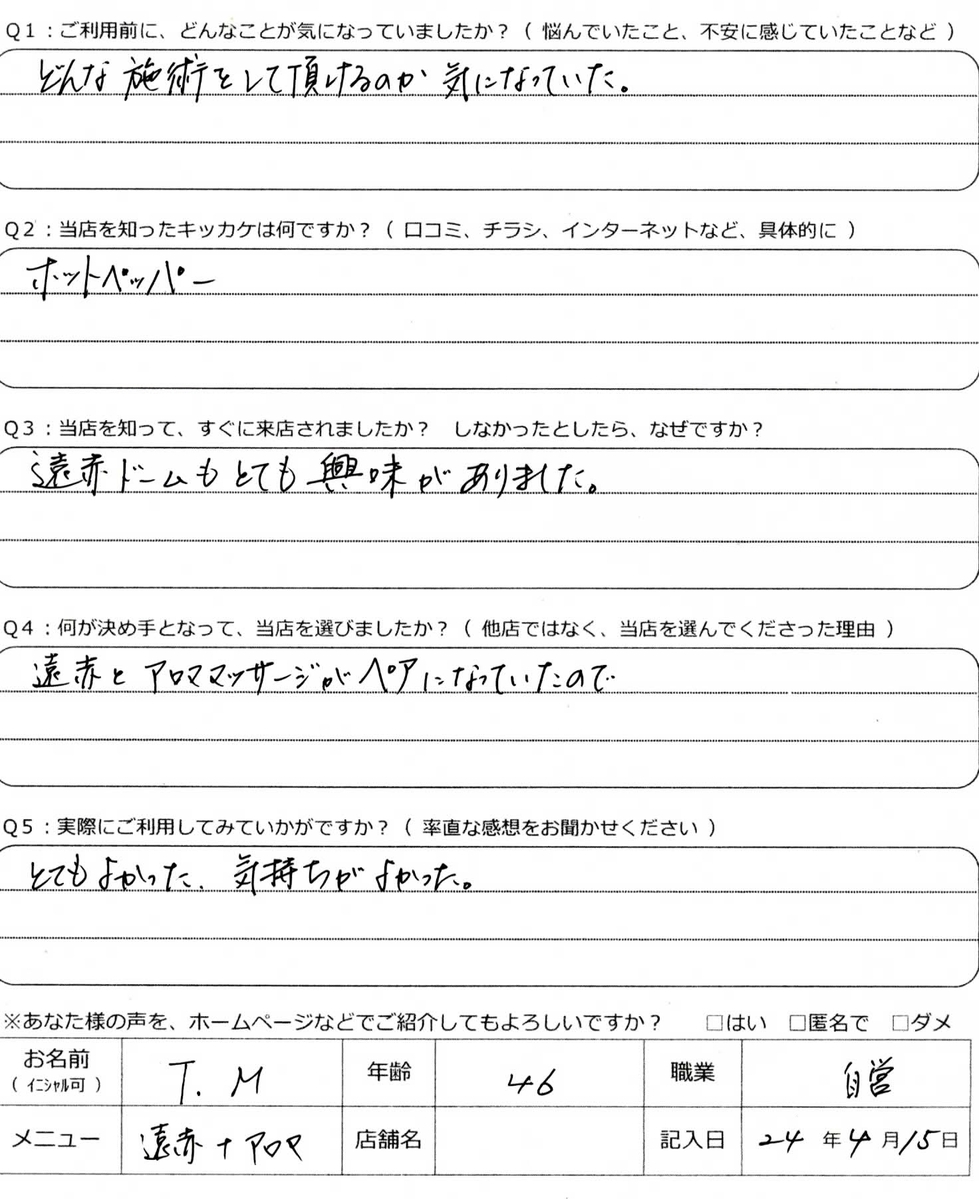 Q1：ご利用前に、どんなことが気になっていましたか？（ 悩んでいたこと、不安に感じていたことなど ）
どんな施術をして頂けるのか 気になっていた。
Q2：当店を知ったキッカケは何ですか？（ 口コミ、チラシ、インターネットなど、具体的に ）
ホットペッパー
Q3：当店を知って、すぐに来店されましたか？ しなかったとしたら、なぜですか？
遠赤ドームもとても興味がありました。
Q4：何が決め手となって、当店を選びましたか？（ 他店ではなく、当店を選んでくださった理由 ）
遠赤と アロママッサージがペアになっていたので
Q5：実際にご利用してみていかがですか？（ 率直な感想をお聞かせください ）
とてもよかった、気持ちがよかった。
※あなた様の声を、ホームページなどでご紹介してもよろしいですか？ □はい □匿名で □ダメ
お名前 T. M 年齢 46 職業 自営
（ ｲﾆｼｬﾙ可 ）
メニュー 遠赤+アロマ 店舗名 記入日 24 年 4 月 15 日